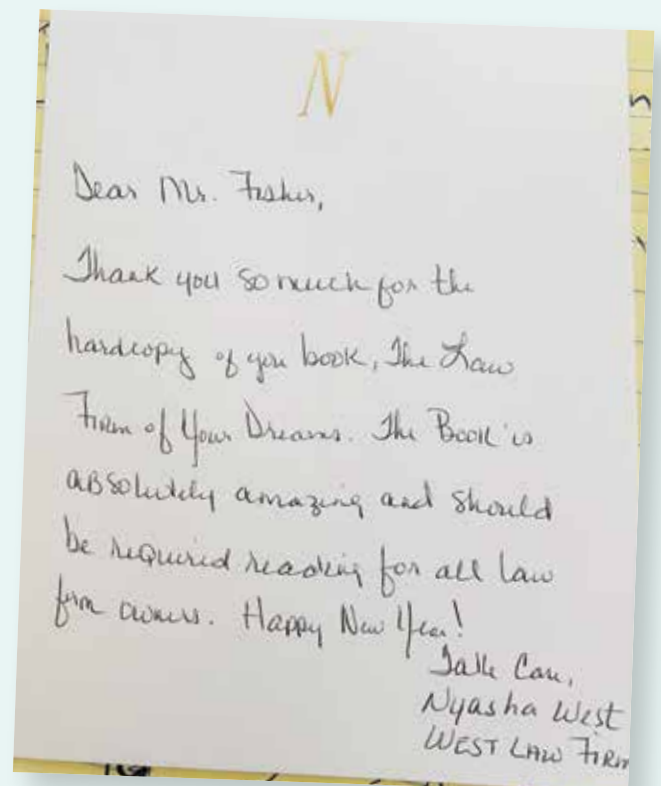 N
Dear Mr. Fisher,
Thank you so much for the
hardcopy of you book, The Law
Firm of Your Dreams. The Book is
absolutely amazing and should
be required reading for all law
firm owners. Happy New Year!
Take Care,
Nyasha West
WEST LAW FIRM